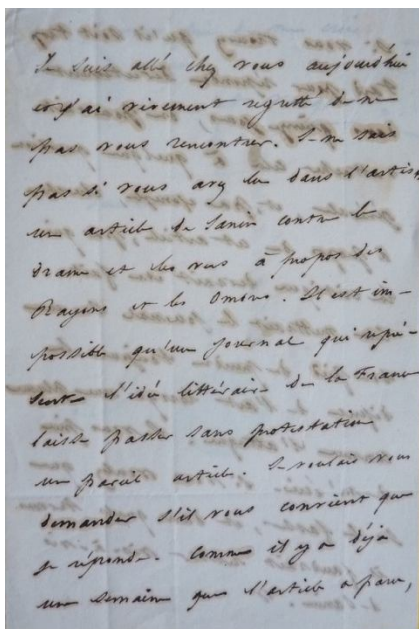 Je suis allé chez vous aujourd'hui
et j'ai vivement regretté de ne
pas vous rencontrer. Je ne sais
pas si vous avez lu dans l'artiste
un article de Janin contre le
Drame et les vers à propos des
Rayons et les Ombres. Il est im-
possible qu'un journal qui repré-
sente l'idée littéraire de la France
laisse passer sans protestation
un pareil article. Je voulais vous
demander s'il vous convient que
je réponde. Comme il y a déjà
une semaine que l'article a paru,